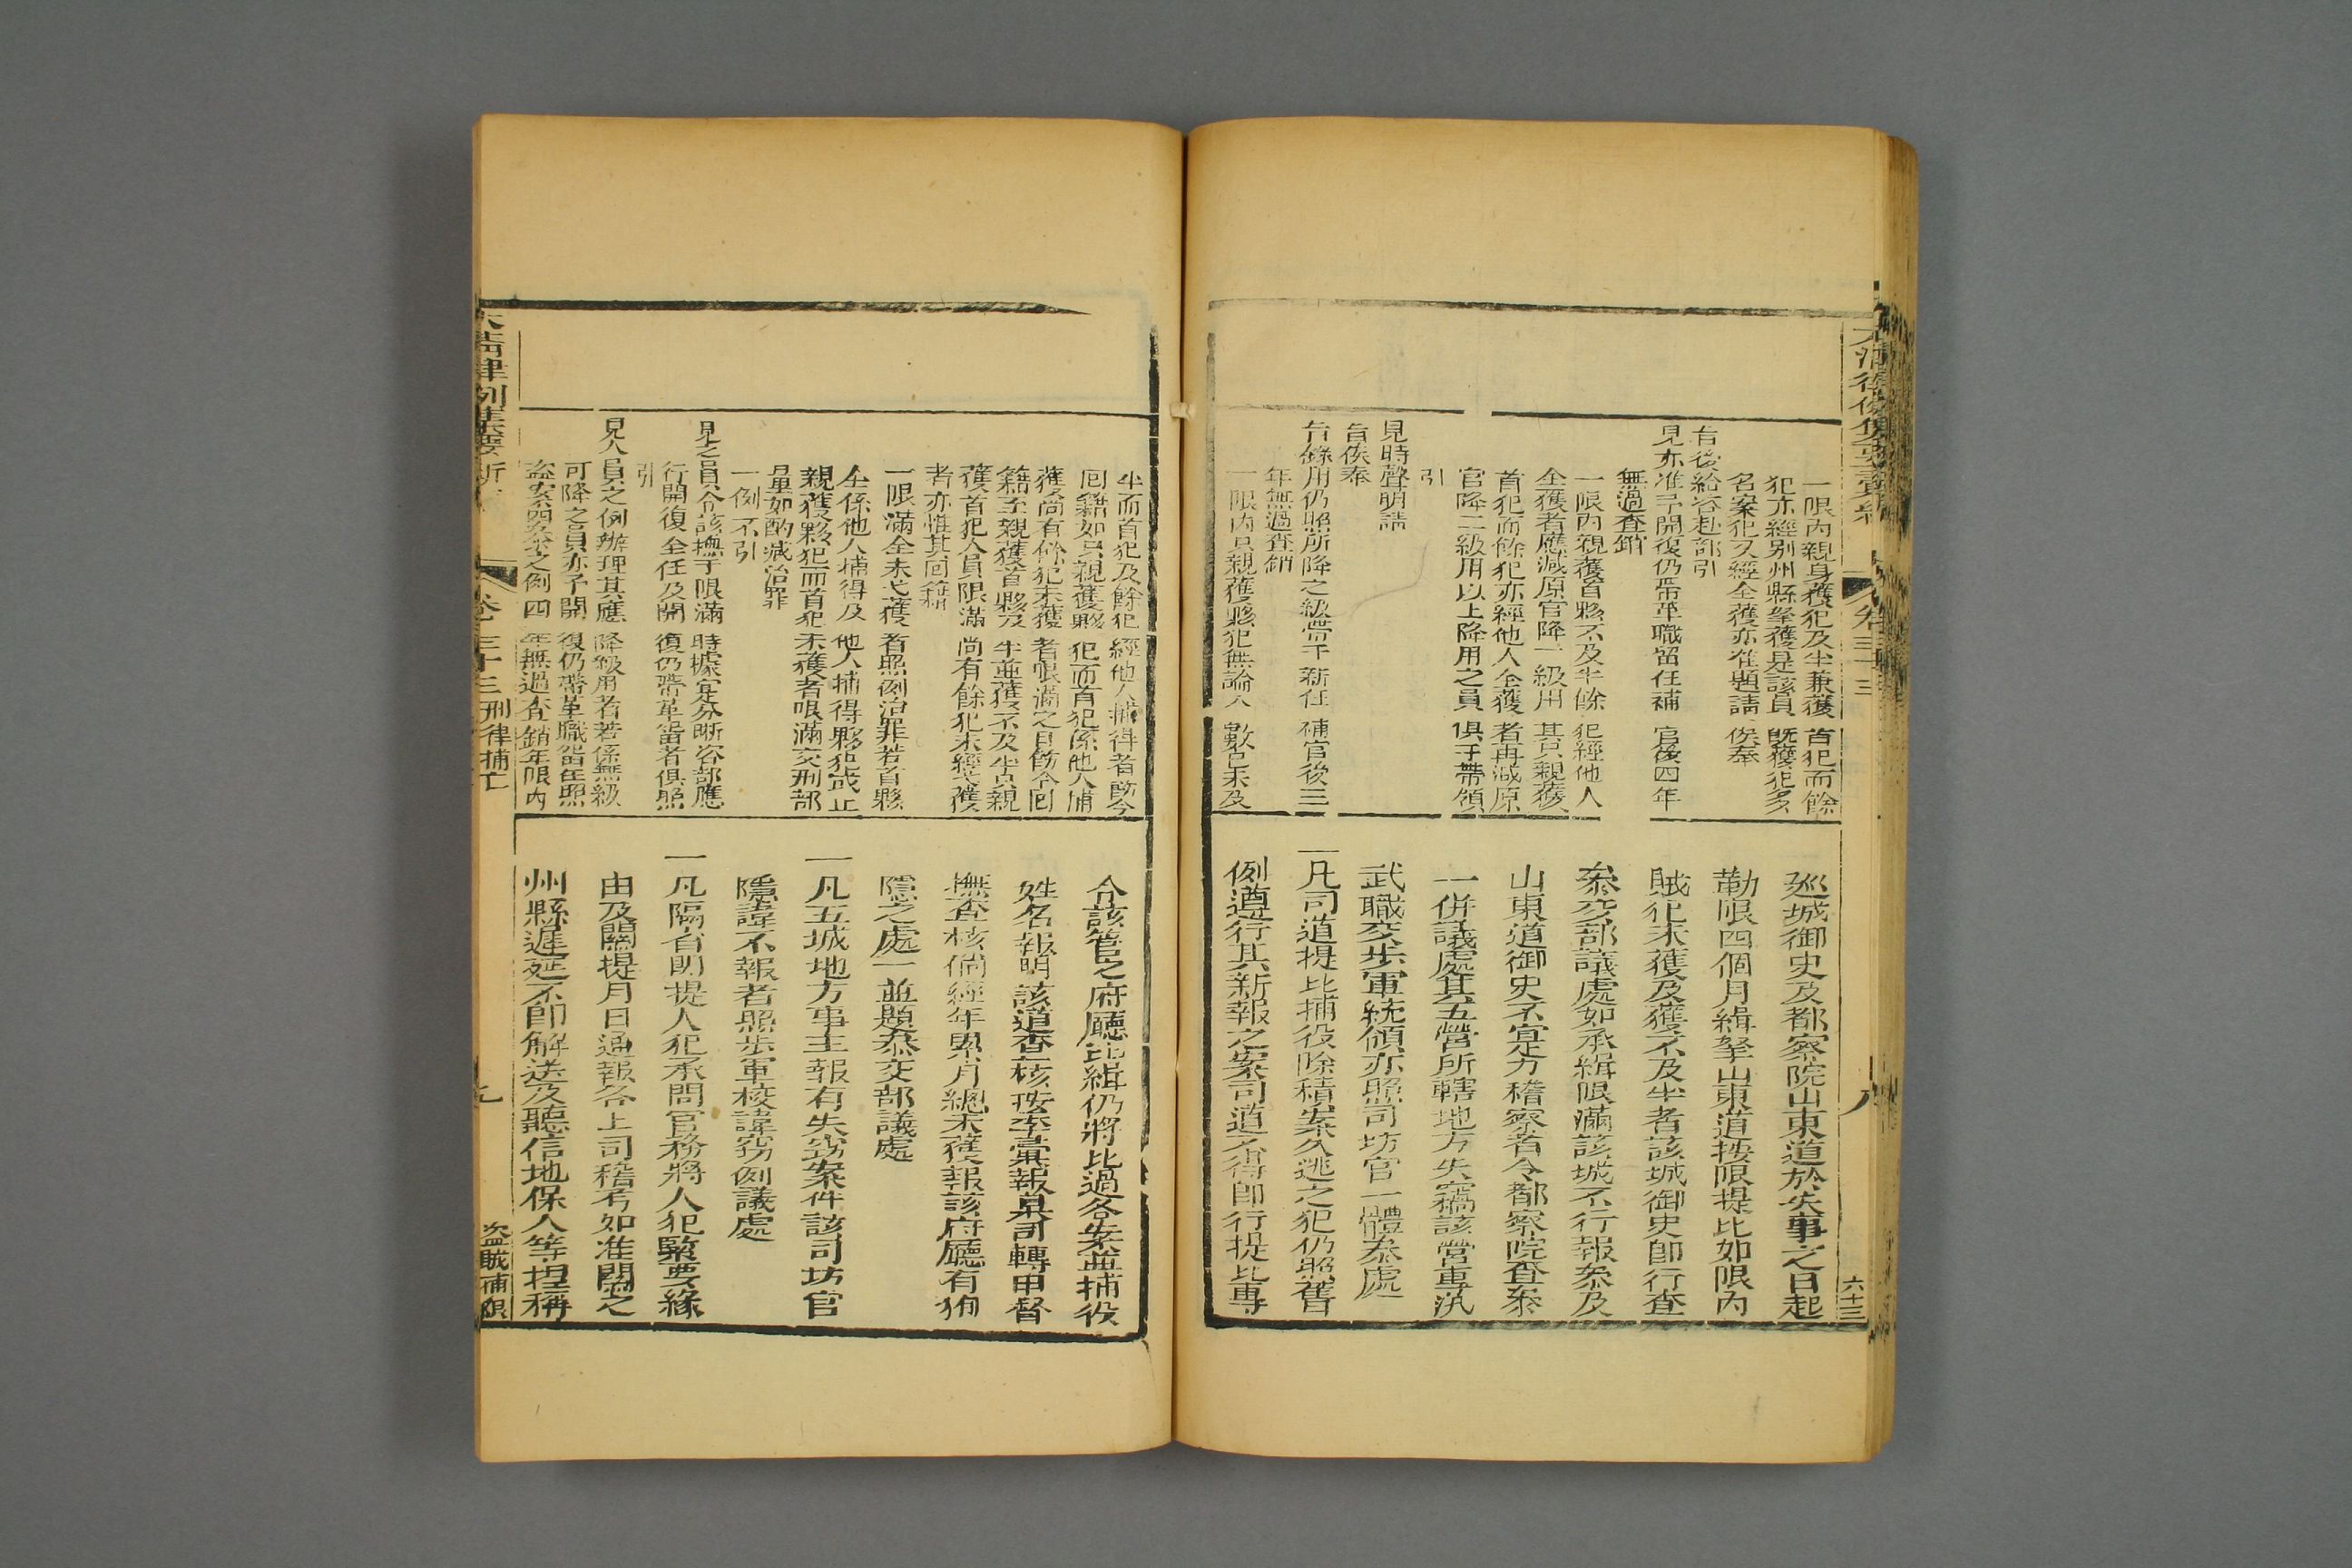 一限內親身獲犯及半兼獲首犯而餘
犯亦經別州縣拏獲是該員既獲犯多
名案犯又經全獲亦准題請俟奉
旨後給咨赴部引
見亦准予開復仍帶革職留任補官後四年
無過查銷
一限內親獲首夥不及半餘犯經他人
全獲者應減原官降一級用其只親獲
首犯而餘犯亦經他人全獲者再減原
官降二級用以上降用之員俱于帶領
引
見時聲明請
旨俟奉
旨餘用仍照所降之級帶于新任補官後三
年無過查銷
一限內只親獲夥犯無論人數已未及
巡城御史及都察院山東道於失事之日起
勒限四個月緝拏山東道按限提比如限內
賊犯未獲及獲不及半者該城御史即行查
叅交部議處如承緝限滿該城不行報叅及
山東道御史不寔力稽察者令都察院查叅
一併議處其五營所轄地方失竊該營專汛
武職交步軍統領亦照司坊官一體叅處
一凡司道提比捕役除積案久逃之犯仍照舊
例遵行其新報之案司道不得卽行提比專
卷三十三
八
六十三
半而首犯及餘犯經他人捕得者飭令
回籍如只親獲夥犯而首犯係他人捕
獲尚有餘犯未獲者限滿之日飭令回
籍至親獲首夥及半並獲不及半只親
獲首犯人員限滿尚有餘犯未經弋獲
者亦惟其回籍
一限滿全未弋獲者照例治罪若首夥
全係他人捕得及他人捕得夥犯或止
親獲夥犯而首犯未獲者限滿交刑部
量如酌減治罪
一例不引
見之員令該撫于限滿時據寔分晰咨部應
行開復全任及開復仍帶革留者俱照
引
見人員之例辦理其應降級用者若係無級
可降之員亦予開復仍帶革職留任照
盜案四叅之例四年無過查銷年限內
令該管之府廳比緝仍將比過各案並捕役
姓名報明該道查核按季彙報臬司轉申督
撫查核倘經年累月總未獲報該府廳有狥
隱之處一並題叅交部議處
一凡五城地方事主報有失竊案件該司坊官
隱諱不報者照步軍校諱竊例議處
一凡隔省關提人犯承問官務將人犯緊要緣
由及關提月日通報各上司稽考如准關之
州縣遲延不卽解送及聽信地保人等揑稱
大清律例集要新
卷三十三刑律捕亡
九
盜賊捕限